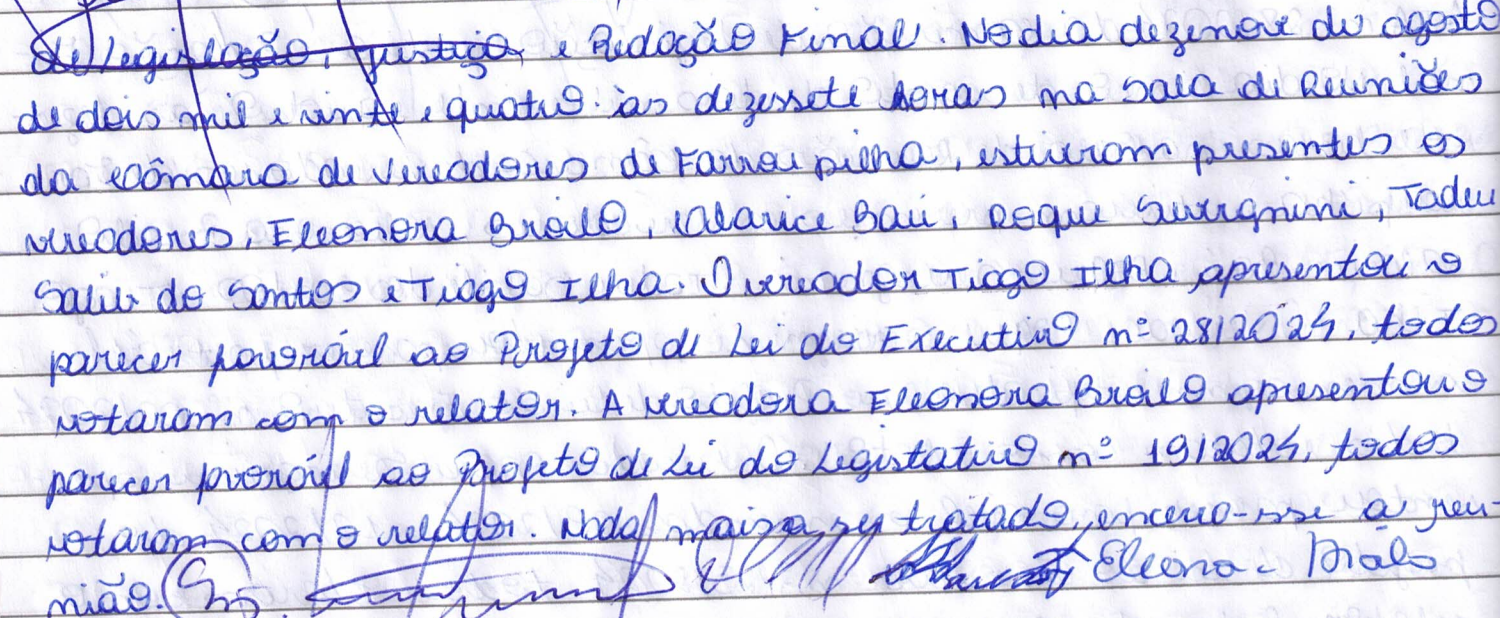 de Legislação, Justiça e Redação Final. No dia dezenove de agosto
de dois mil e vinte e quatro as dezessete horas na sala de Reuniões
da Câmara de Vereadores de Farroupilha, estiveram presentes os
vereadores, Eleonora Broilo, Calarice Baú, Roque Severgnini, Tadeu
Salib do Santos e Tiago Ilha. O vereador Tiago Ilha apresentou o
parecer favorável ao Projeto de Lei do Executivo nº 28/2024, todos
votaram com o relator. A vereadora Eleonora Broilo apresentou o
parecer favorável ao Projeto de Lei do Legistativo nº 19/2024, todos
votaram com o relator. Nada mais a ser tratado, encerro-se a reu-
nião. Eleonora Broilo